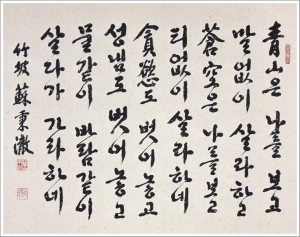 靑山은 나를 보고
말없이 살라하고
蒼空은 나를 보고
티없이 살라하네
貪慾도 벗어놓고
성냄도 벗어놓고
물같이 바람같이
살라가 가라하네
竹坡 蘇秉澈